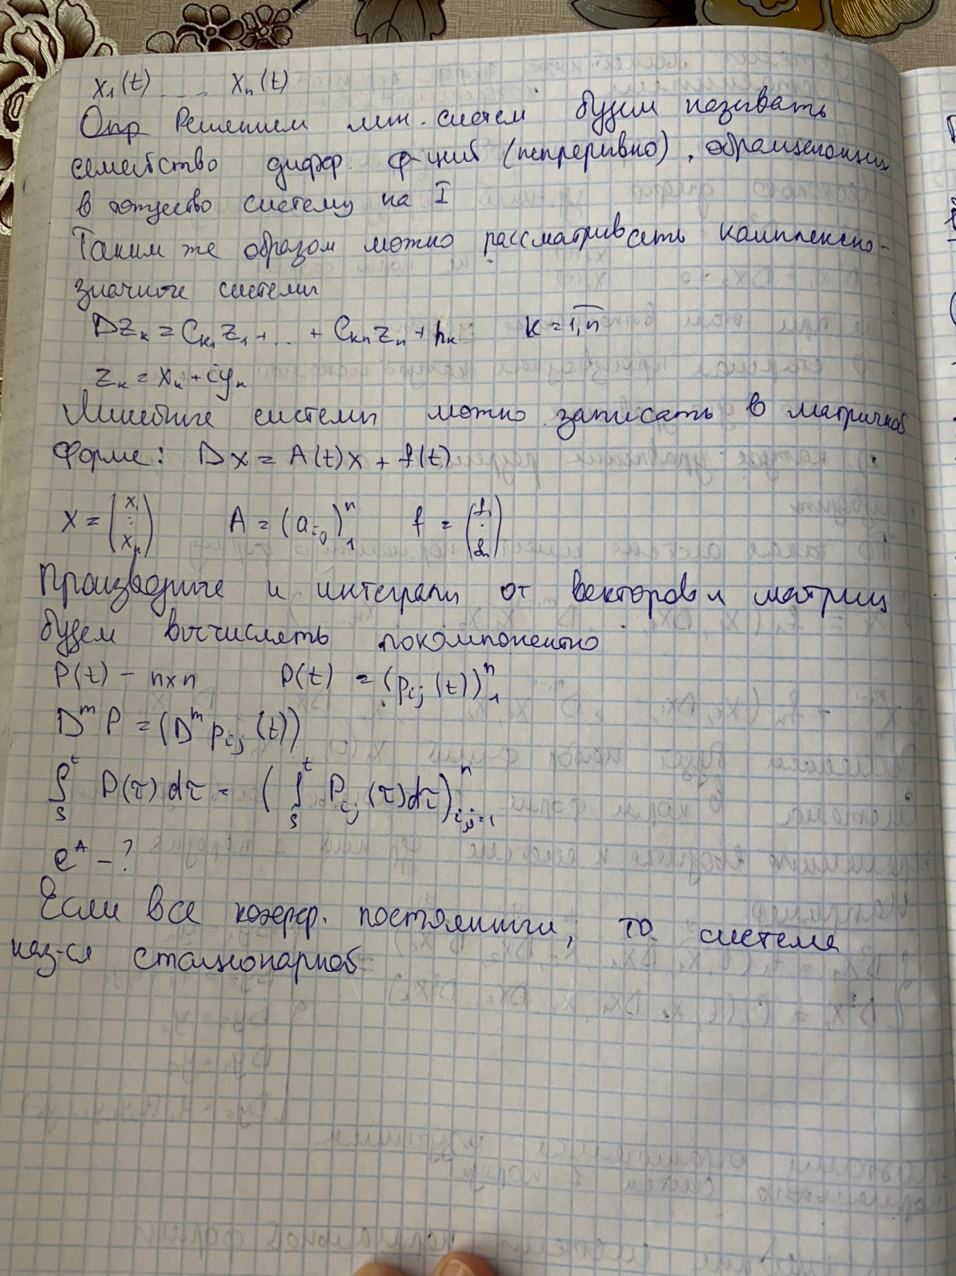 x₁(t) ... xₙ(t)
Опр Решением лин. систем будем называть
семейство дифф. ф-ций (непрерывно), обращающих
в тождество систему на I
Таким же образом можно рассматривать комплексно-
значные системы
Dzₖ = Cₖ₁z₁ + ... + Cₖₙzₙ + hₖ k = 1,n
zₖ = xₖ + iyₖ
Линейные системы можно записать в матричной
форме: Dx = A(t)x + f(t)
x = (x₁ : xₙ) A = (aᵢⱼ)₁ⁿ f = (f₁ : fₙ)
Производные и интегралы от векторов и матриц
будем вычислять покомпонентно
P(t) - n×n P(t) = (pᵢⱼ(t))₁ⁿ
DᵐP = (Dᵐpᵢⱼ(t))
∫ₛᵗ P(τ)dτ = (∫ₛᵗ Pᵢⱼ(τ)dτ)ⁿᵢ,ⱼ₌₁
eᴬ - ?
Если все коэфф. постоянны, то система
наз-ся стационарной